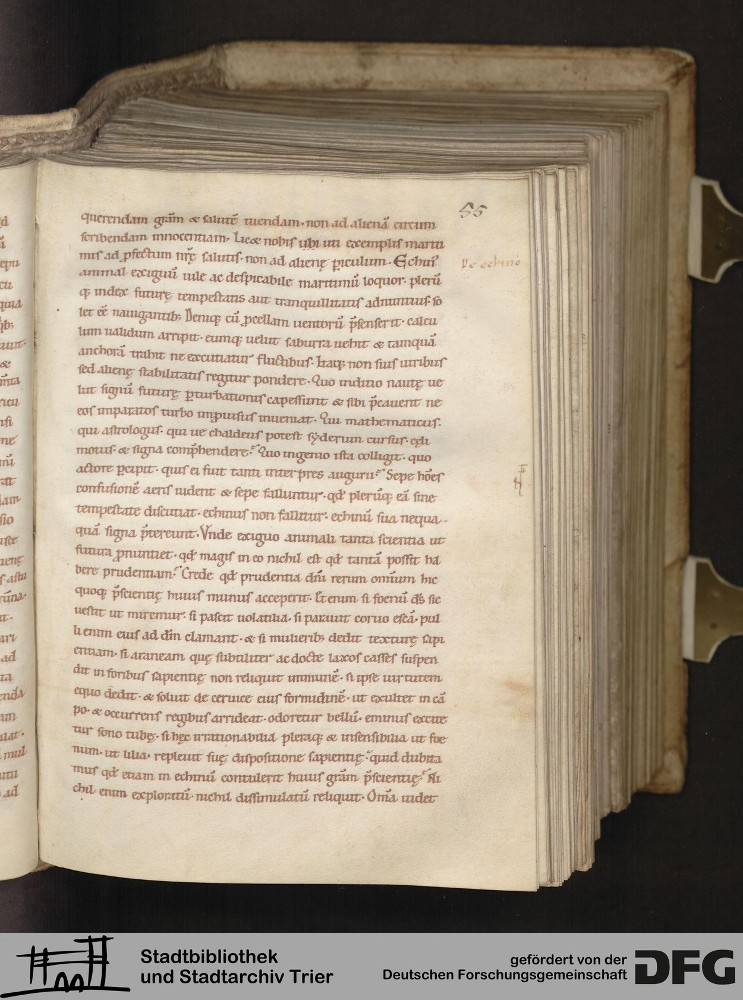 55
querendam grãm & salutẽ tuendam· non ad alienã circum
scribendam innocentiam· Liceat nobis ubi uti exemplis mariti
mis ad ꝓfectum nr̃ę salutis· non ad alienę ꝑiculum· Echin᷒
De echino
animal exiguũ uile ac despicabile maritimũ loquor· plerũ
q; index futurę tempestatis aut tranquillitatis adnuntius so
let eẽ nauigantib; Deniq; cũ ꝓcellam uentorũ p̃senserit· calcu
lum ualidum arripit· eumq; uelut saburra uehit & tamquã
anchorã trahit ne excutiatur fluctibus· Itaq; non suis uiribus
sed alienę stabilitatis regitur pondere· Quo inditio nautę ue
lut signũ futurę ꝑturbationis capessunt & sibi p̃cauent ne
eos imparatos turbo inprouisus inueniat· Qui mathematicus·
qui astrologus· qui ue chaldeus potest syderum cursus· cęli
motus· & signa comp̃hendere? Quo ingenio ista colligit· quo
actore ꝑcipit· quis ei fuit tanti interpres augurii? Sepe hoẽs
confusionẽ aeris uident & sepe falluntur· qd̃ plerũq; eã sine
tempestate discutiat· echinus non fallitur· echinũ sua nequa
quã signa p̃tereunt· Vnde exiguo animali tanta scientia ut
futura ꝓnuntiet· qd̃ magis in eo nichil est qd̃ tantã possit ha
bere prudentiam? Crede qd̃ prudentia dñi rerum omnium hic
quoq; p̃scientię huius munus acceperit· Etenim si foenũ ds̃ sic
uestit ut miremur· si pascit uolatilia· si parauit coruo escã· pul
li enim eius ad dñm clamant· & si mulierib; dedit texturę sapi
entiam· si araneam quę subtiliter ac docte laxos casses suspen
dit in foribus sapientię non reliquit immunẽ· si ipse uirtutem
equo dedit· & soluit de ceruice eius formidinẽ· ut exultet in cã
po· & occurrens regibus arrideat· odoretur bellũ· eminus excite
tur sono tubę· si hęc irrationabilia pleraq; & insensibilia ut foe
num· ut lilia· repleuit suę dispositione sapientię· quid dubita
mus qd̃ etiam in echinũ contulerit huius grãm p̃scientię? Ni
chil enim exploratũ· nichil dissimulatũ reliquit· Om̃a uidet
Stadtbibliothek
und Stadtarchiv Trier
gefördert von der
Deutschen Forschungsgemeinschaft
DFG